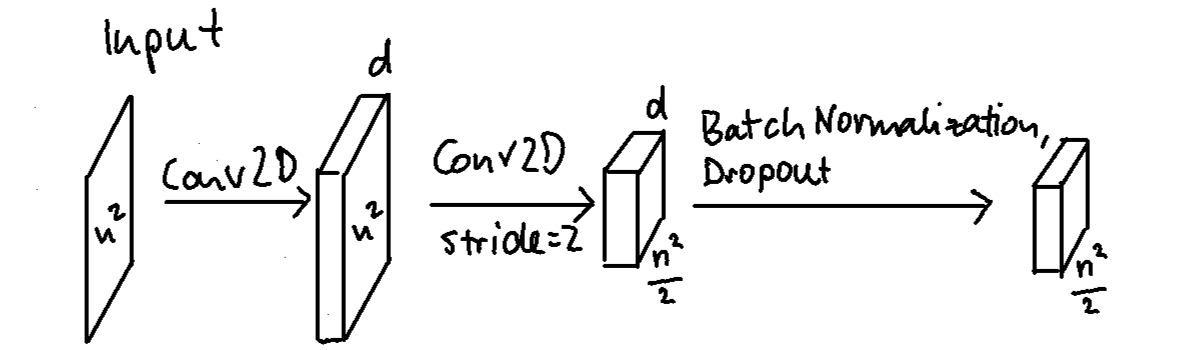 Input
n²
Conv2D
d
n²
Conv2D
stride=2
d
n²/2
Batch Normalization,
Dropout
n²/2